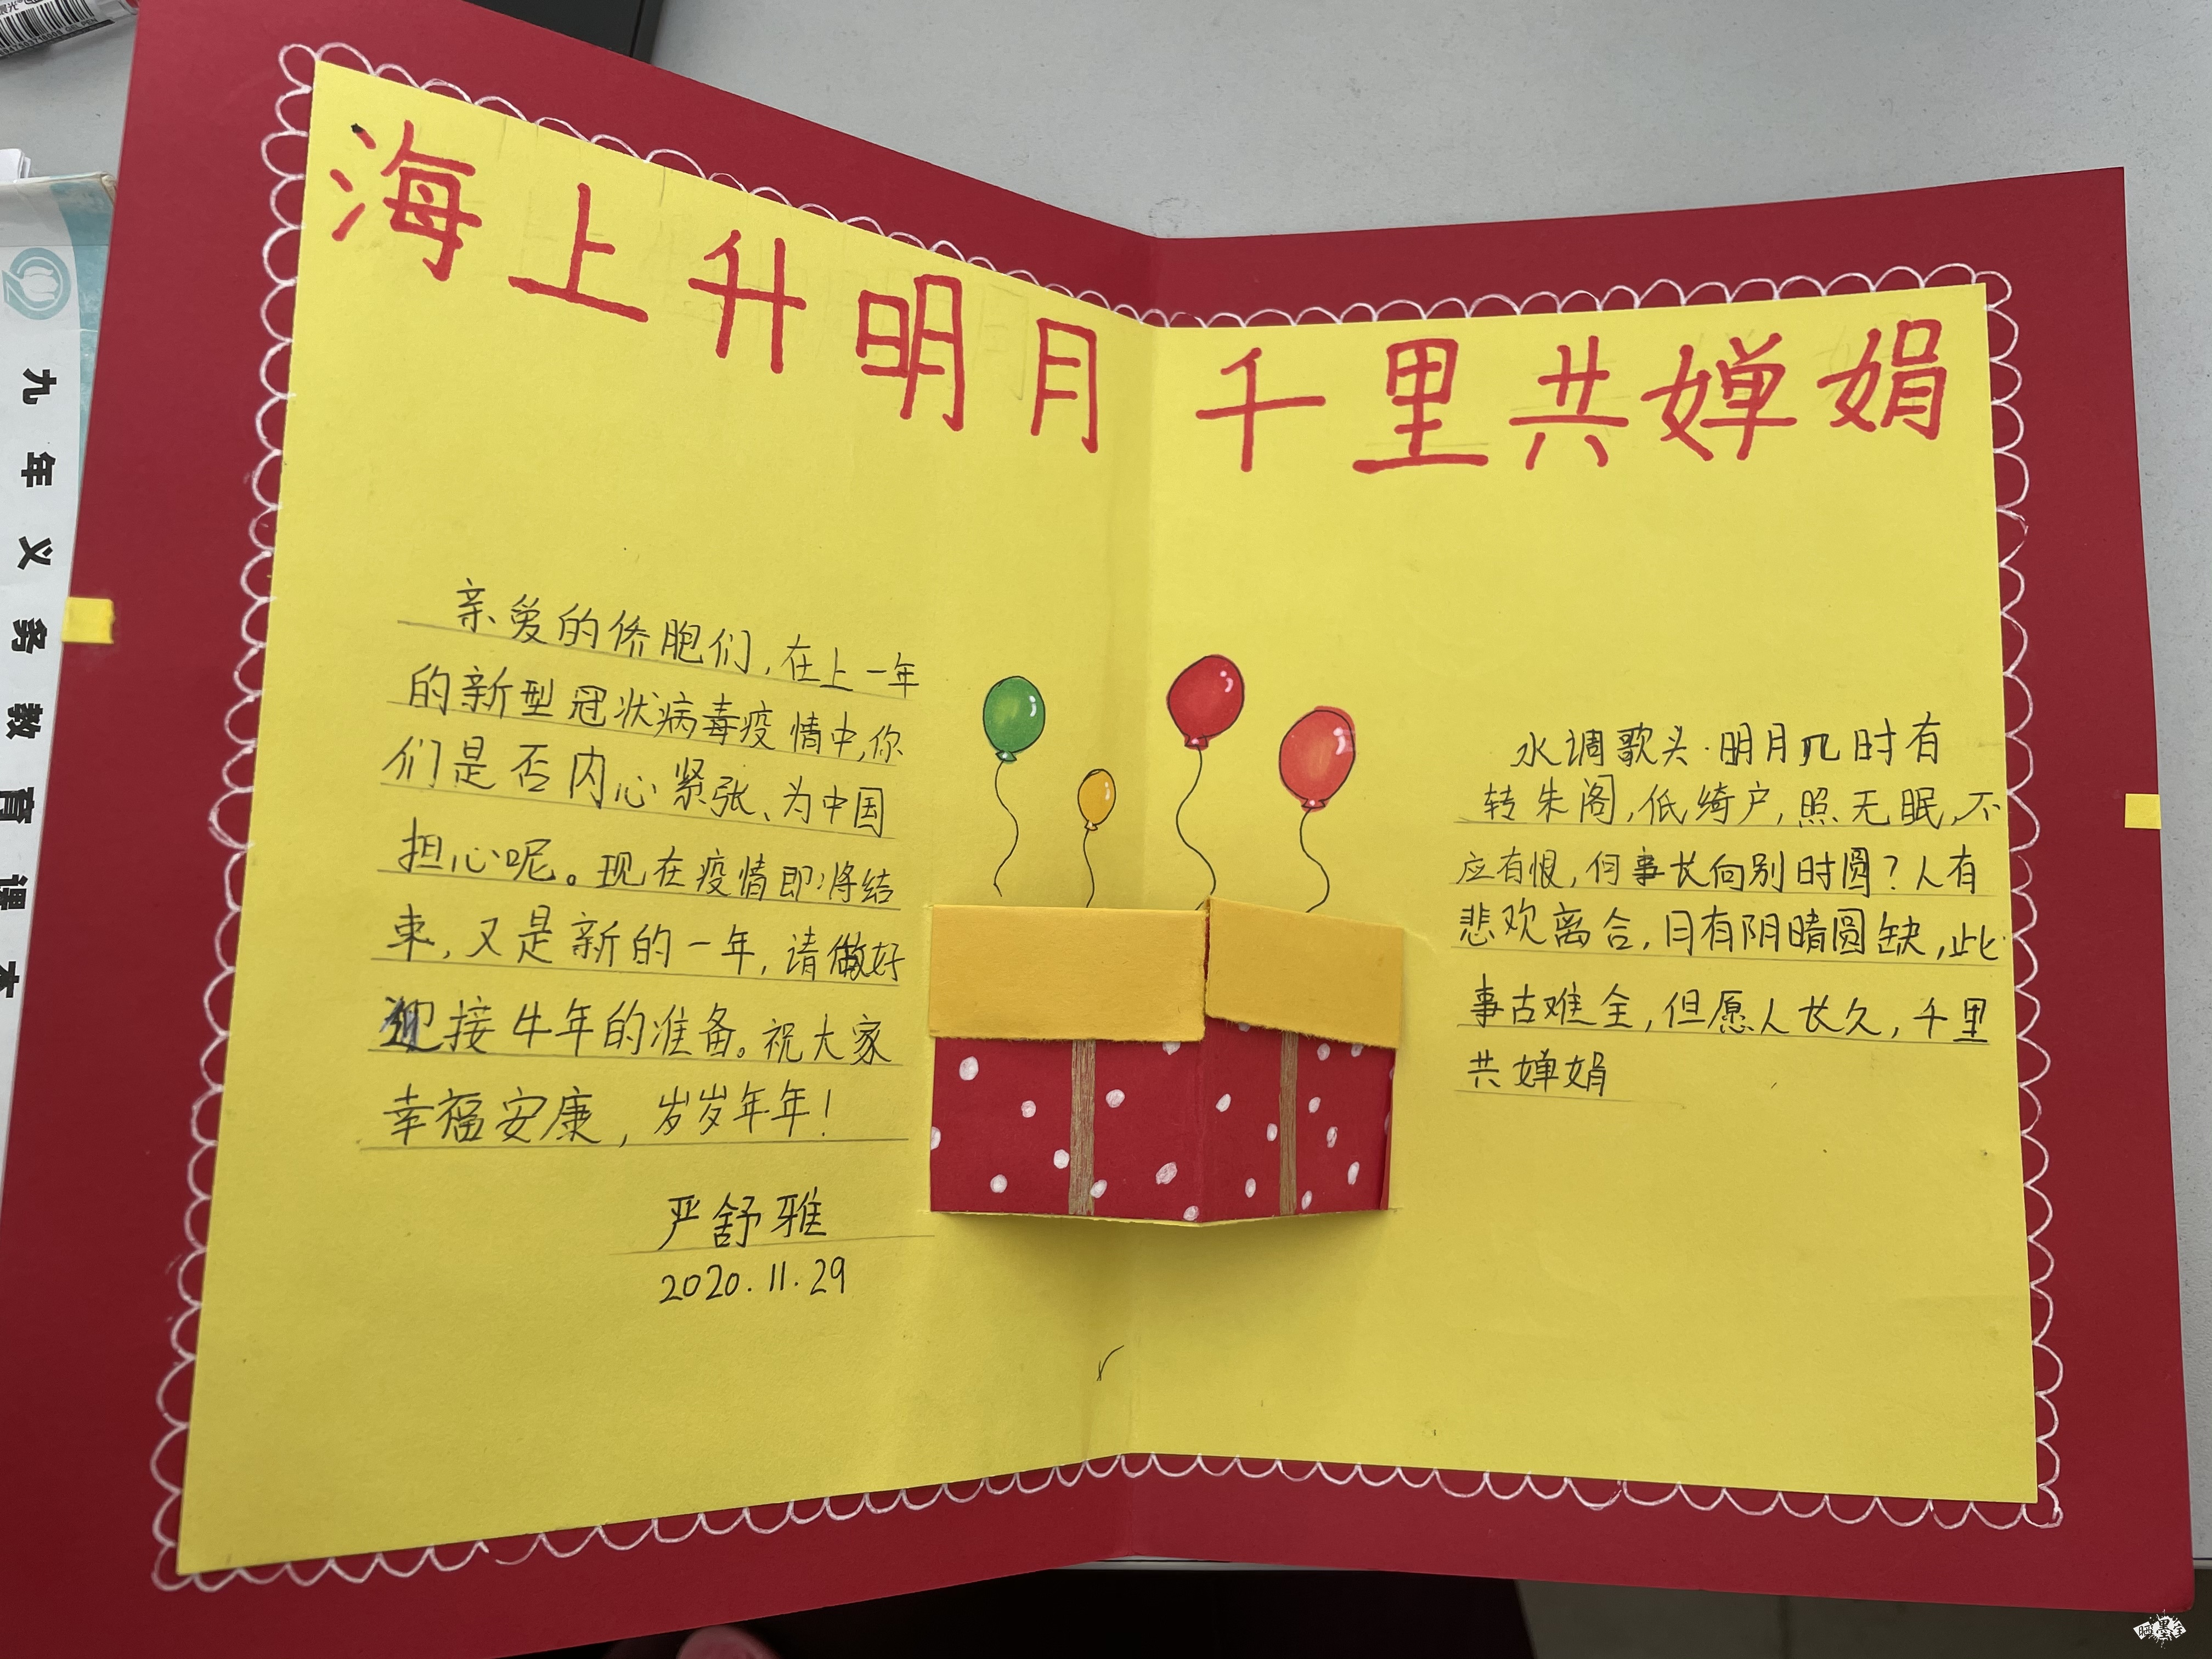 海上升明月 千里共婵娟
亲爱的侨胞们,在上一年
的新型冠状病毒疫情中,你
们是否内心紧张、为中国
担心呢。现在疫情即将结
束,又是新的一年,请做好
迎接牛年的准备。祝大家
幸福安康,岁岁年年!
严舒雅
2020.11.29
水调歌头·明月几时有
转朱阁,低绮户,照无眠,不
应有恨,何事长向别时圆?人有
悲欢离合,月有阴晴圆缺,此
事古难全,但愿人长久,千里
共婵娟
九年义务教育课本